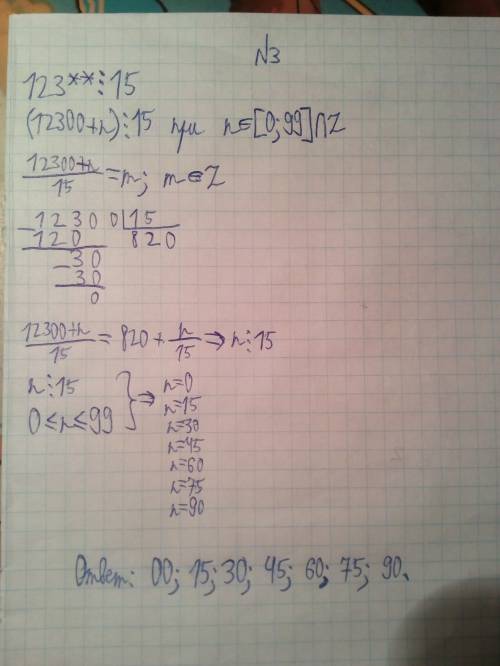 N3
123**⋮15
(12300+n)⋮15 при n∈[0;99]∩Z
12300+n/15=m; m∈Z
12300 15
120 820
30
30
0
12300+n/15=820+n/15⇒n⋮15
n⋮15
0≤n≤99 } ⇒
n=0
n=15
n=30
n=45
n=60
n=75
n=90
Ответ: 00; 15; 30; 45; 60; 75; 90.